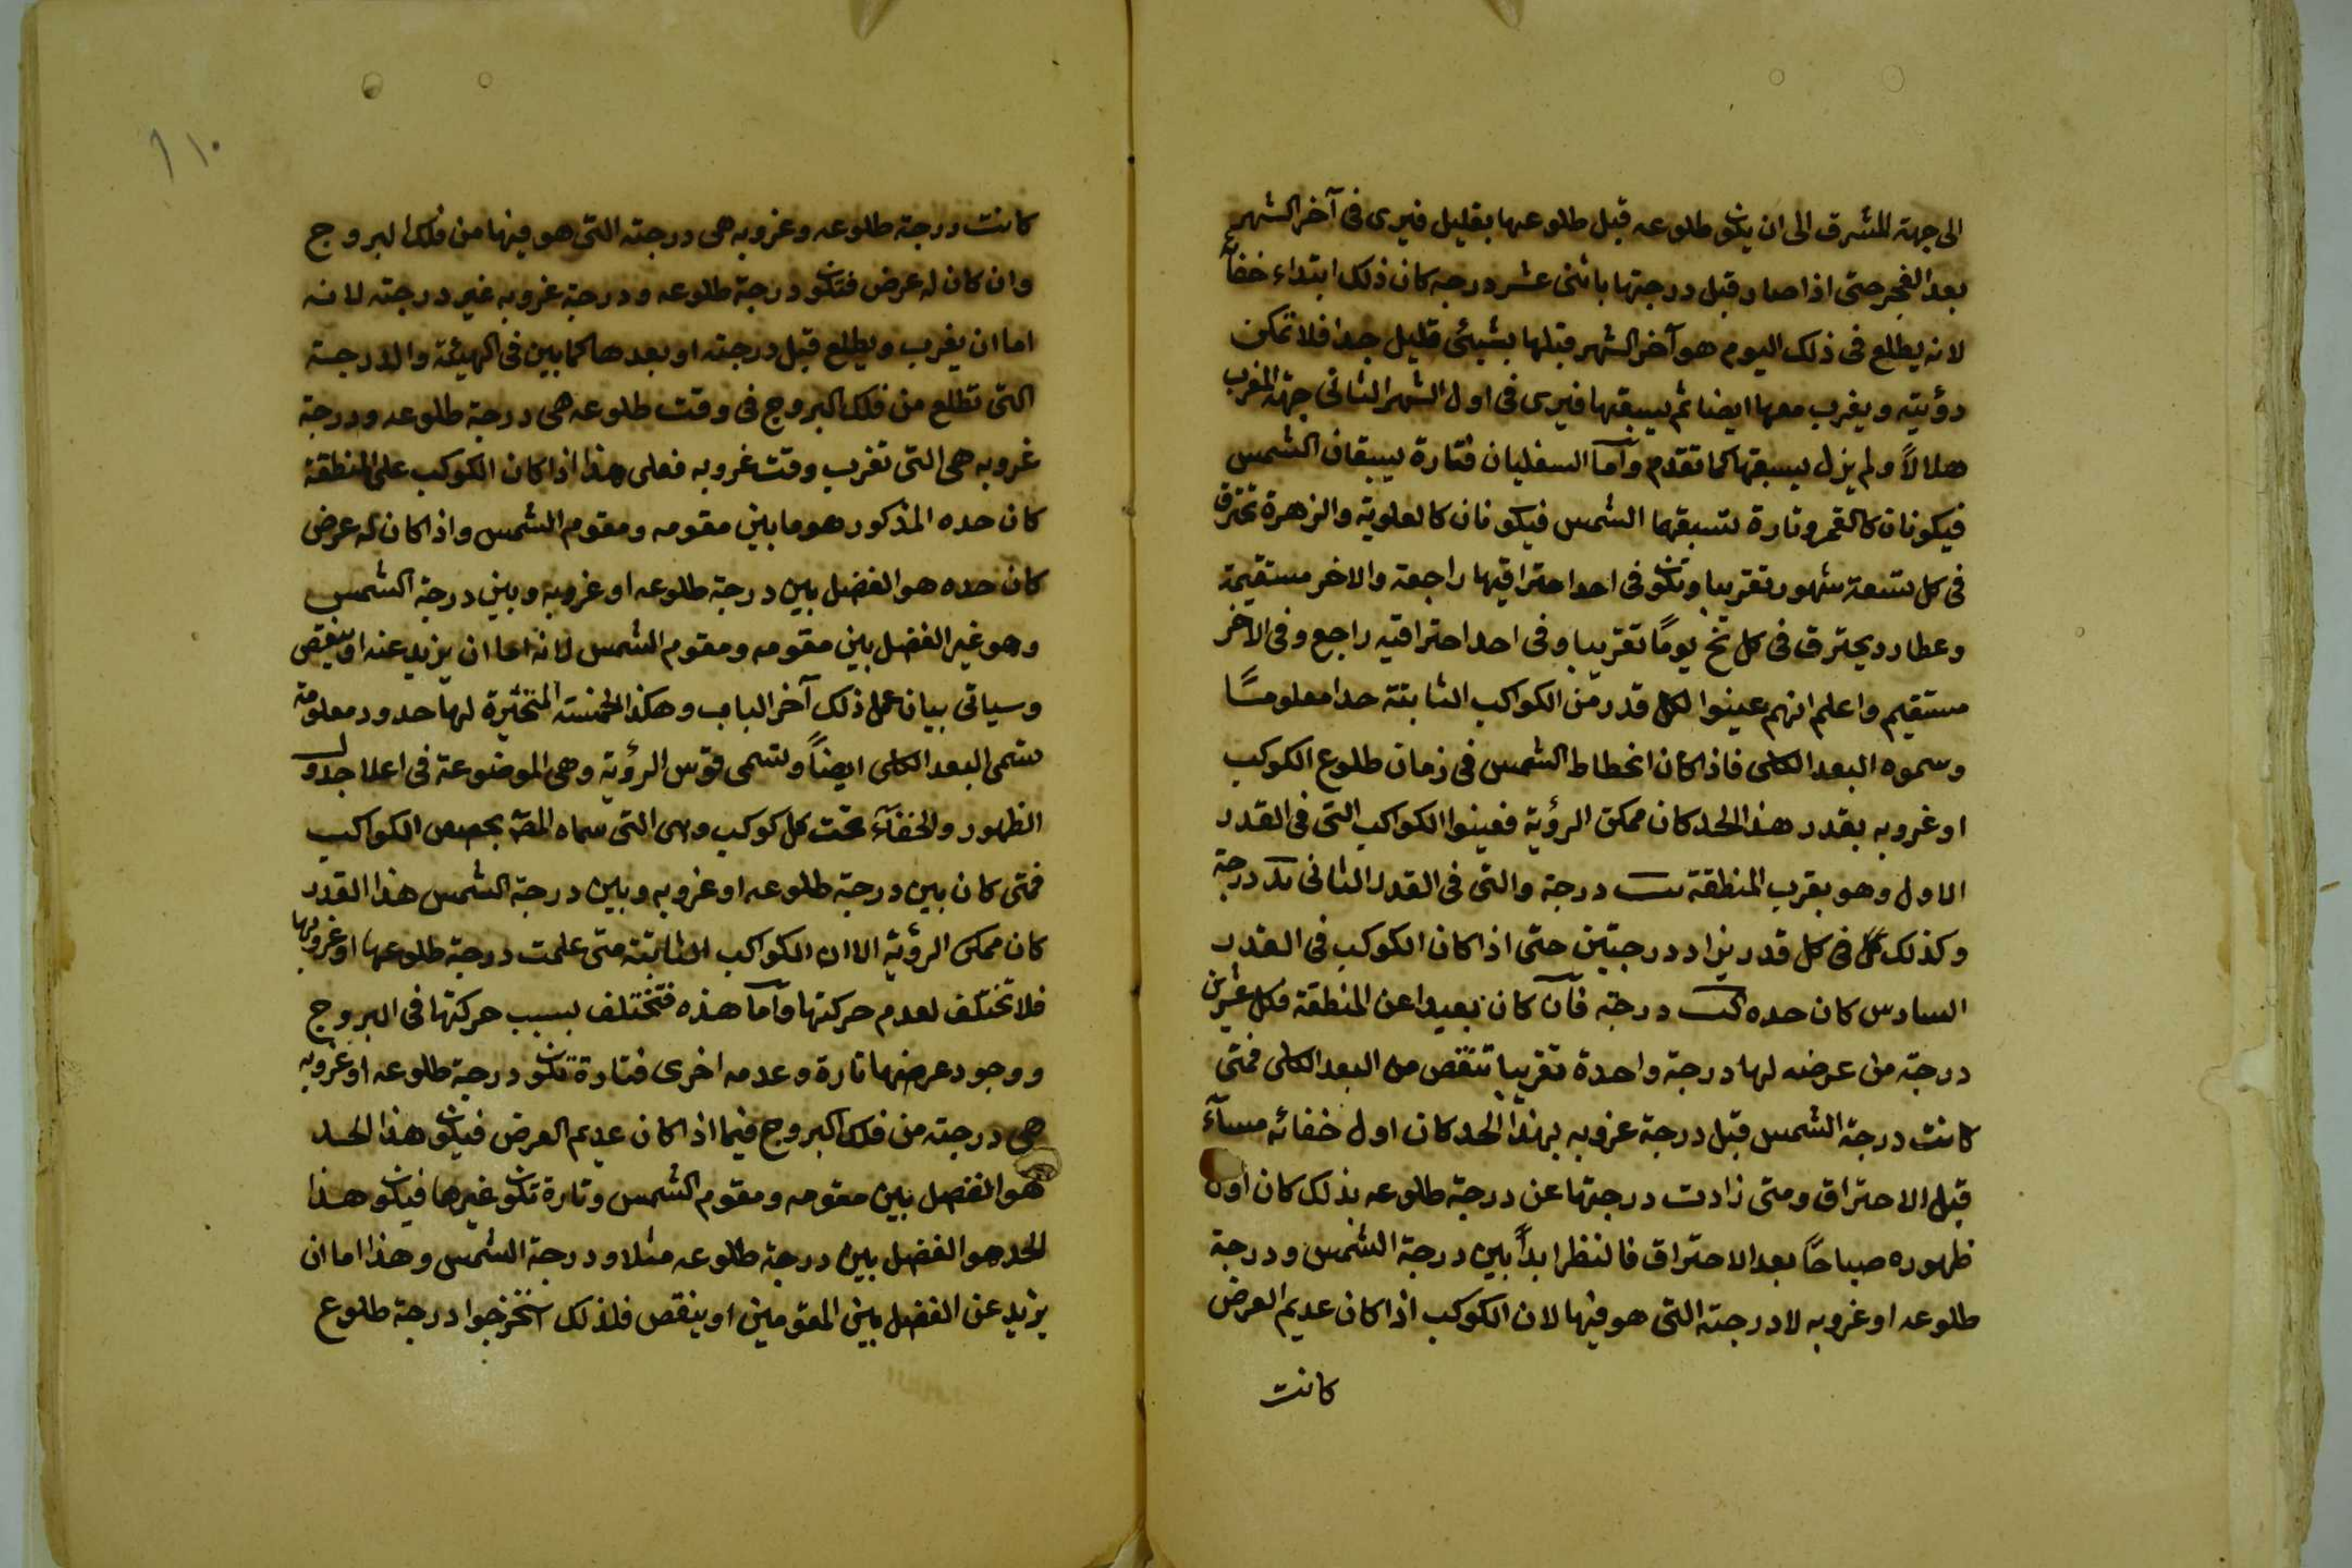 الى جهة المشرق الى ان يكون طلوعه قبل طلوعها بقليل فيرى فى آخر الشهر
بعد الفجر حتى اذا صار قبل درجتها باثنى عشر درجه كان ذلك ابتداء خفائه
لانه يطلع فى ذلك اليوم هو آخر الشهر قبلها بشيئ قليل جدا فلا تمكن
رؤيته ويغرب معها ايضا ثم يسبقها فيرى فى اول الشهر الثانى جهة المغرب
هلالاً ولم يزل يسبقها كما تقدم وأما السفليان فتارة يسبقان الشمس
فيكونان كالقمر وتارة تسبقهما الشمس فيكونان كالعلوية والزهرة تحترق
فى كل تسعة شهور تقريبا وتكون فى احد احتراقيها راجعة والاخر مستقيمة
وعطارد يحترق فى كل نخ يومًا تقريبا وفى احد احتراقيه راجع وفى الاخر
مستقيم واعلم انهم عينوا لكل قدر من الكواكب الثابتة حدا معلومًا
وسموه البعد الكلى فاذا كان انحطاط الشمس فى زمان طلوع الكوكب
او غروبه بقدر هذا الحد كان ممكن الرؤية فعينوا الكواكب التى فى القدر
الاول وهو بقرب المنطقة يب درجة والتى فى القدر الثانى يد درجة
وكذلك كل فى كل قدر يزاد درجتين حتى اذا كان الكوكب فى القدر
السادس كان حده كب درجة فآن كان بعيدا عن المنطقة فكل عشرين
درجة من عرضه لها درجة واحدة تقريبا تنقص من البعد الكلى فمتى
كانت درجة الشمس قبل درجة غروبه بهذا الحد كان اول خفائه مسآء
قبل الاحتراق ومتى زادت درجتها عن درجة طلوعه بذلك كان اول
ظهوره صباحًا بعد الاحتراق فالنظر ابدًا بين درجة الشمس ودرجة
طلوعه او غروبه لا درجته التى هو فيها لان الكوكب اذا كان عديم العرض
كانت
١١٠
كانت درجة طلوعه وغروبه هى درجته التى هو فيها من فلك البروج
وان كان له عرض فتكون درجة طلوعه ودرجة غروبه غير درجته لانه
اما ان يغرب ويطلع قبل درجته او بعدها كما بين فى الهيئة والدرجة
التى تطلع من فلك البروج فى وقت طلوعه هى درجة طلوعه ودرجة
غروبه هى التى تغرب وقت غروبه فعلى هذا اذا كان الكوكب على المنطقة
كان حده المذكور هو ما بين مقومه ومقوم الشمس واذا كان له عرض
كان حده هو الفضل بين درجة طلوعه او غروبه وبين درجة الشمس
وهو غير الفضل بين مقومه ومقوم الشمس لانه اما ان يزيد عنه او ينقص
وسياتى بيان عمل ذلك آخر الباب وهكذا الخمسة المتحيرة لها حدود معلومة
تسمى البعد الكلى ايضاً وتسمى قوس الرؤية وهى الموضوعة فى اعلا جدول
الظهور والخفآء تحت كل كوكب وهى التى سماه المص بحصص الكواكب
فمتى كان بين درجة طلوعه او غروبه وبين درجة الشمس هذا القدر
كان ممكن الرؤية الا ان الكواكب الثابتة متى علمت درجة طلوعها او غروبها
فلا تختلف لعدم حركتها وآما هذه فتختلف بسبب حركتها فى البروج
ووجود عرضها تارة وعدمه اخرى فتارة تكون درجة طلوعه او غروبه
هى درجته من فلك البروج فيما اذا كان عديم العرض فيكون هذا الحد
هو الفضل بين مقومه ومقوم الشمس وتارة تكون غيرها فيكون هذا
الحد هو الفضل بين درجة طلوعه مثلا ودرجة الشمس وهذا اما ان
يزيد عن الفضل بين المقومين او ينقص فلذلك استخرجوا درجة طلوع